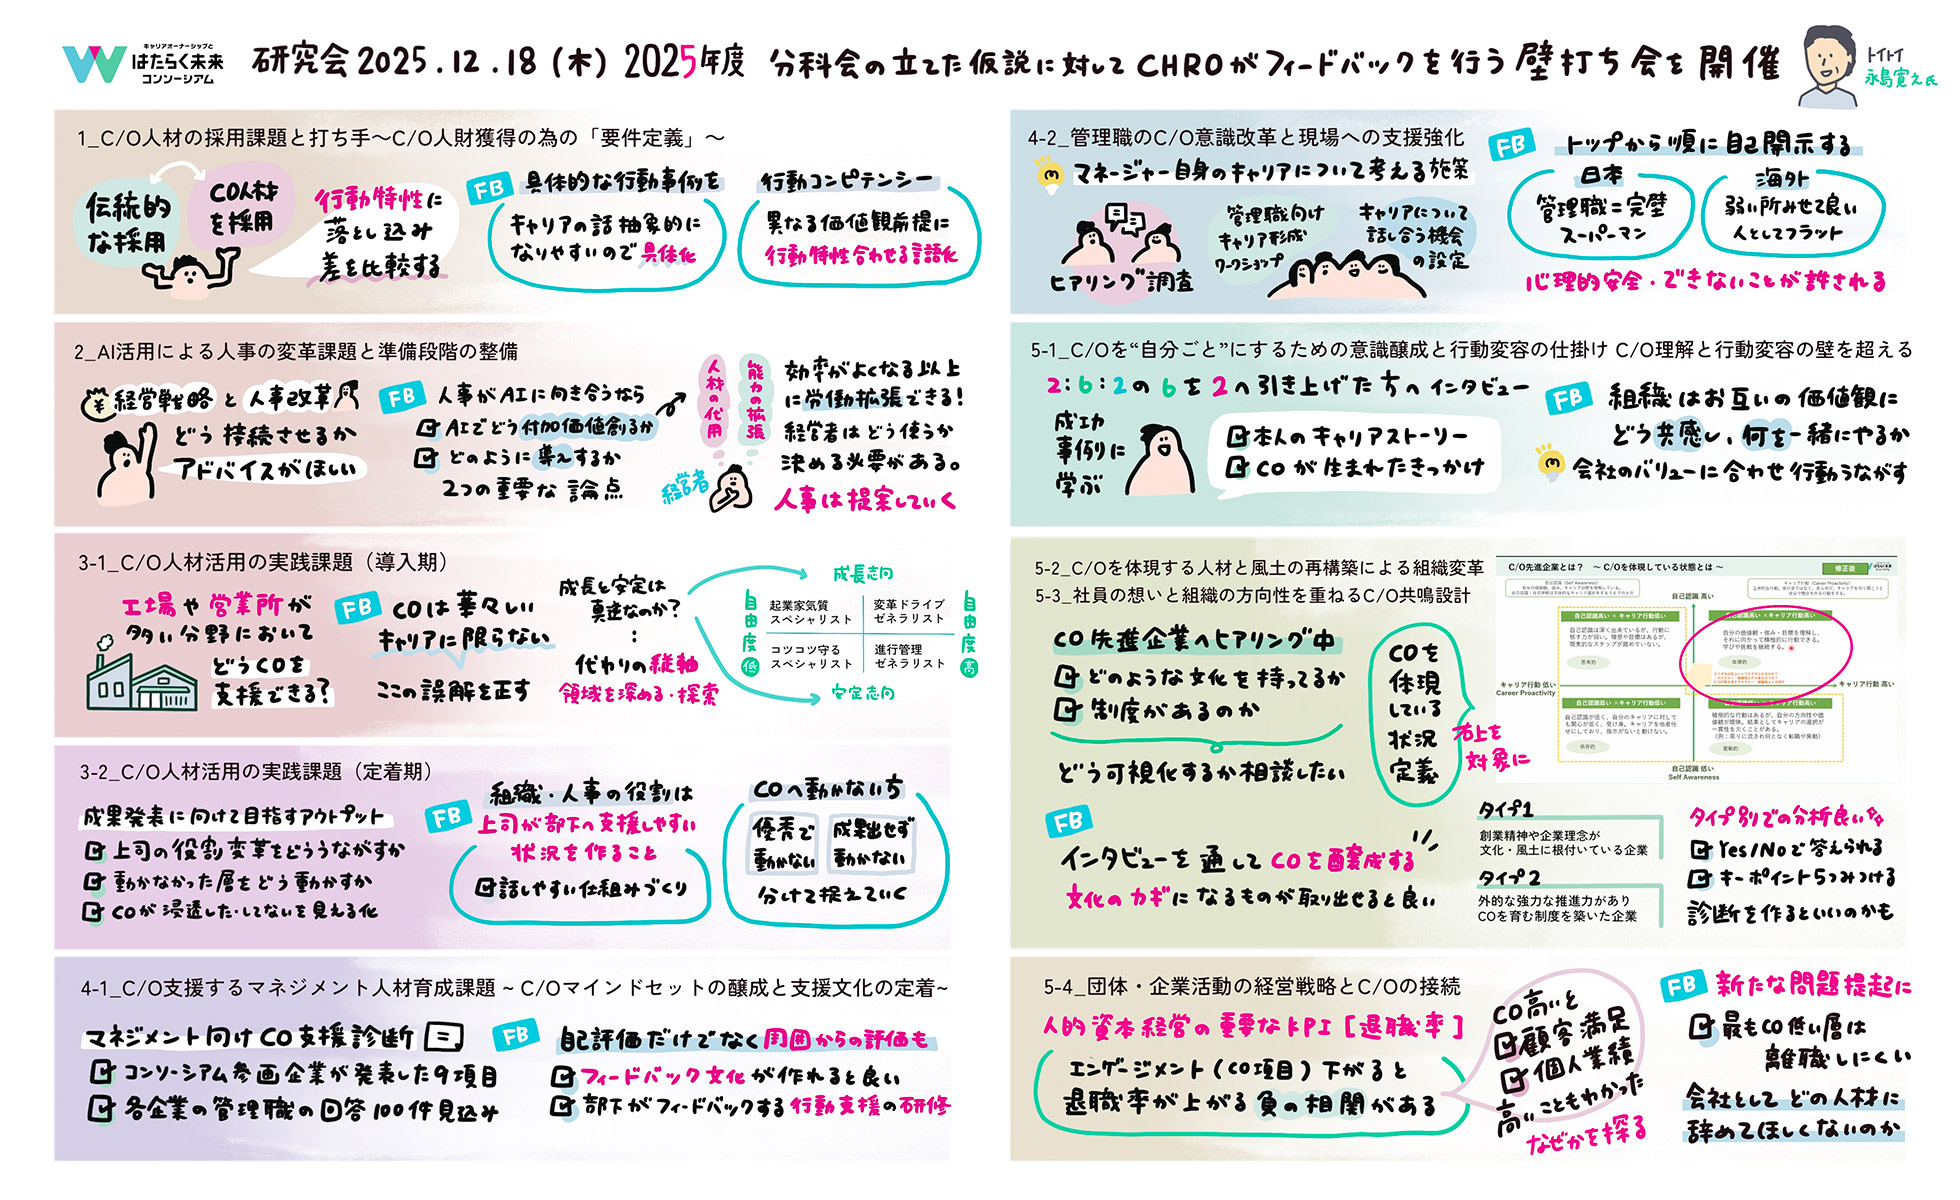 キャリアオーナーシップと
はたらく未来
コンソーシアム
研究会 2025.12.18 (木) 2025年度 分科会の立てた仮説に対してCHROがフィードバックを行う壁打ち会を開催
トイトイ
永島寛之氏
1_C/O人材の採用課題と打ち手〜C/O人財獲得の為の「要件定義」〜
伝統的
な採用
CO人材
を採用
行動特性に
落とし込み
差を比較する
FB
具体的な行動事例を
キャリアの話抽象的に
なりやすいので具体化
行動コンピテンシー
異なる価値観前提に
行動特性合わせる言語化
2_AI活用による人事の変革課題と準備段階の整備
¥
経営戦略と人事改革
どう接続させるか
アドバイスがほしい
FB
人事がAIに向き合うなら
AIでどう付加価値創るか
どのように導入するか
2つの重要な論点
人材の代用
能力の拡張
経営者
効率がよくなる以上
に労働拡張できる!
経営者はどう使うか
決める必要がある。
人事は提案していく
3-1_C/O人材活用の実践課題（導入期）
工場や営業所が
多い分野において
どうCOを
支援できる?
FB
COは華々しい
キャリアに限らない
ここの誤解を正す
成長と安定は
真逆なのか?
:
代わりの縦軸
領域を深める・探索
成長志向
自由度 低
起業家気質
スペシャリスト
変革ドライブ
ゼネラリスト
コツコツ守る
スペシャリスト
進行管理
ゼネラリスト
自由度 高
安定志向
3-2_C/O人材活用の実践課題（定着期）
成果発表に向けて目指すアウトプット
上司の役割変革をどううながすか
動かなかった層をどう動かすか
COが浸透した・してないを見える化
FB
組織・人事の役割は
上司が部下へ支援しやすい
状況を作ること
話しやすい仕組みづくり
COへ動かない5
優秀で
動かない
成果出せず
動かない
分けて捉えていく
4-1_C/O支援するマネジメント人材育成課題 ~ C/Oマインドセットの醸成と支援文化の定着~
マネジメント向けCO支援診断
コンソーシアム参画企業が発表した9項目
各企業の管理職の回答100件見込み
FB
自己評価だけでなく周囲からの評価も
フィードバック文化が作れると良い
部下がフィードバックする行動支援の研修
4-2_管理職のC/O意識改革と現場への支援強化
マネージャー自身のキャリアについて考える施策
ヒアリング調査
管理職向け
キャリア形成
ワークショップ
キャリアについて
話し合う機会
の設定
FB
トップから順に自己開示する
日本
管理職=完璧
スーパーマン
海外
弱い所みせて良い
人としてフラット
心理的安全・できないことが許される
5-1_C/Oを“自分ごと”にするための意識醸成と行動変容の仕掛け C/O理解と行動変容の壁を超える
2:6:2の6を2へ引き上げた方へインタビュー
成功
事例に
学ぶ
本人のキャリアストーリー
COが生まれたきっかけ
FB
組織はお互いの価値観に
どう共感し、何を一緒にやるか
会社のバリューに合わせ行動うながす
5-2_C/Oを体現する人材と風土の再構築による組織変革
5-3_社員の想いと組織の方向性を重ねるC/O共鳴設計
CO先進企業へヒアリング中
どのような文化を持ってるか
制度があるのか
どう可視化するか相談したい
COを
体現
している
状況
定義
右上を
対象に
C/O先進企業とは？ ～ C/Oを体現している状態とは ～
修正後
自己認識 高い
自己認識高い × キャリア行動低い
自己認識は深く出来ているが、行動に
移す力が弱い。理想や目標はあるが、
現実的なステップが踏めていない。
思考的
自己認識高い × キャリア行動高い
自分の価値観・強み・目標を理解し、
それに向かって積極的に行動できる。
学びや挑戦を継続する。
自律的
キャリア行動 低い
Career Proactivity
キャリア行動 高い
自己認識低い × キャリア行動低い
自己認識が低く、自分のキャリアに対して
も関心が低く、受け身。キャリアを他者任
せにしており、指示がないと動けない。
依存的
自己認識低い × キャリア行動高い
積極的な行動はあるが、自分の方向性や価
値観が曖昧。結果としてキャリアの選択が
一貫性を欠くことがある。
（例：周りに流され何となく転職や異動）
衝動的
自己認識 低い
Self Awareness
FB
インタビューを通してCOを醸成する
文化のカギになるものが取り出せると良い
タイプ1
創業精神や企業理念が
文化・風土に根付いている企業
タイプ2
外的な強力な推進力があり
COを育む制度を築いた企業
タイプ別での分析良い
Yes/Noで答えられる
キーポイント5つみつける
診断を作るといいのかも
5-4_団体・企業活動の経営戦略とC/Oの接続
人的資本経営の重要なKPI [退職率]
エンゲージメント(CO項目)下がると
退職率が上がる負の相関がある
CO高いと
顧客満足
個人業績
高いこともわかった
なぜかを探る
FB
新たな問題提起に
最もCO低い層は
離職しにくい
会社としてどの人材に
辞めてほしくないのか